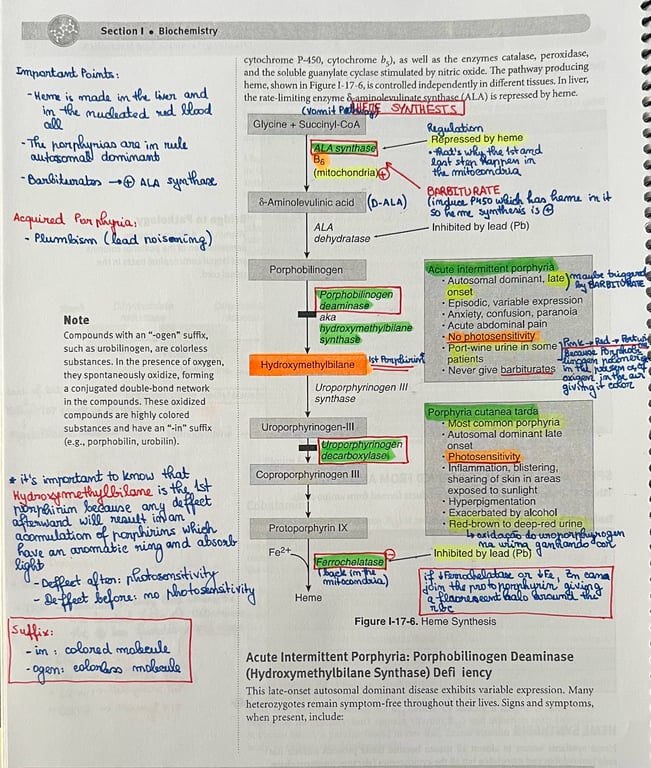 Section I • Biochemistry
Important Points:
- Heme is made in the liver and
in the nucleated red blood
all
- The porphyrias are in rule
autosomal dominant
- Barbiturates → ⊕ ALA synthase
Acquired Porphyria:
- Plumbism (lead poisoning)
Note
Compounds with an “-ogen” suffix,
such as urobilinogen, are colorless
substances. In the presence of oxygen,
they spontaneously oxidize, forming
a conjugated double-bond network
in the compounds. These oxidized
compounds are highly colored
substances and have an “-in” suffix
(e.g., porphobilin, urobilin).
* it's important to know that
Hydroxymethylbilane is the 1st
porphirin because any deffect
afterward will result in an
acomulation of porphirins which
have an aromatic ring and absorb
light
- Deffect after: photosensitivity
- Deffect before: no photosensitivity
Suffix:
- in: colored molecule
- ogen: colorless molecule
cytochrome P-450, cytochrome b5), as well as the enzymes catalase, peroxidase,
and the soluble guanylate cyclase stimulated by nitric oxide. The pathway producing
heme, shown in Figure I-17-6, is controlled independently in different tissues. In liver,
the rate-limiting enzyme δ-aminolevulinate synthase (ALA) is repressed by heme.
(Vomit Pathway)
HEME SYNTHESIS
Glycine + Succinyl-CoA
ALA synthase
B6
(mitochondria) ⊕
Regulation
Repressed by heme
• that's why the 1st and
last step happen in
the mitocondria
BARBITURATE
(induce P450 which has heme in it
so heme synthesis is ⊕
δ-Aminolevulinic acid (D-ALA)
ALA
dehydratase
Inhibited by lead (Pb)
Porphobilinogen
Porphobilinogen
deaminase
aka
hydroxymethylbilane
synthase
Acute intermittent porphyria
• Autosomal dominant, late
onset
maybe triggered
by BARBITURATE
• Episodic, variable expression
• Anxiety, confusion, paranoia
• Acute abdominal pain
• No photosensitivity
• Port-wine urine in some
patients
• Never give barbiturates
Because
in the
oxigen in the air
giving it color
Hydroxymethylbilane
1st Porphirin
Uroporphyrinogen III
synthase
Uroporphyrinogen-III
Uroporphyrinogen
decarboxylase
Porphyria cutanea tarda
• Most common porphyria
• Autosomal dominant late
onset
• Photosensitivity
• Inflammation, blistering,
shearing of skin in areas
exposed to sunlight
• Hyperpigmentation
• Exacerbated by alcohol
• Red-brown to deep-red urine
↳ oxidação do uroporphyrogen
na urina ganhando cor
Coproporphyrinogen III
Protoporphyrin IX
Fe2+
Ferrochelatase ⊖
(back in the
mitocondria)
Inhibited by lead (Pb)
Heme
if ↓Ferrochelatase or ↓Fe, Zn can
join the protoporphyrin giving
a fluorescent halo around the
rbc
Figure I-17-6. Heme Synthesis
Acute Intermittent Porphyria: Porphobilinogen Deaminase
(Hydroxymethylbilane Synthase) Defi iency
This late-onset autosomal dominant disease exhibits variable expression. Many
heterozygotes remain symptom-free throughout their lives. Signs and symptoms,
when present, include: